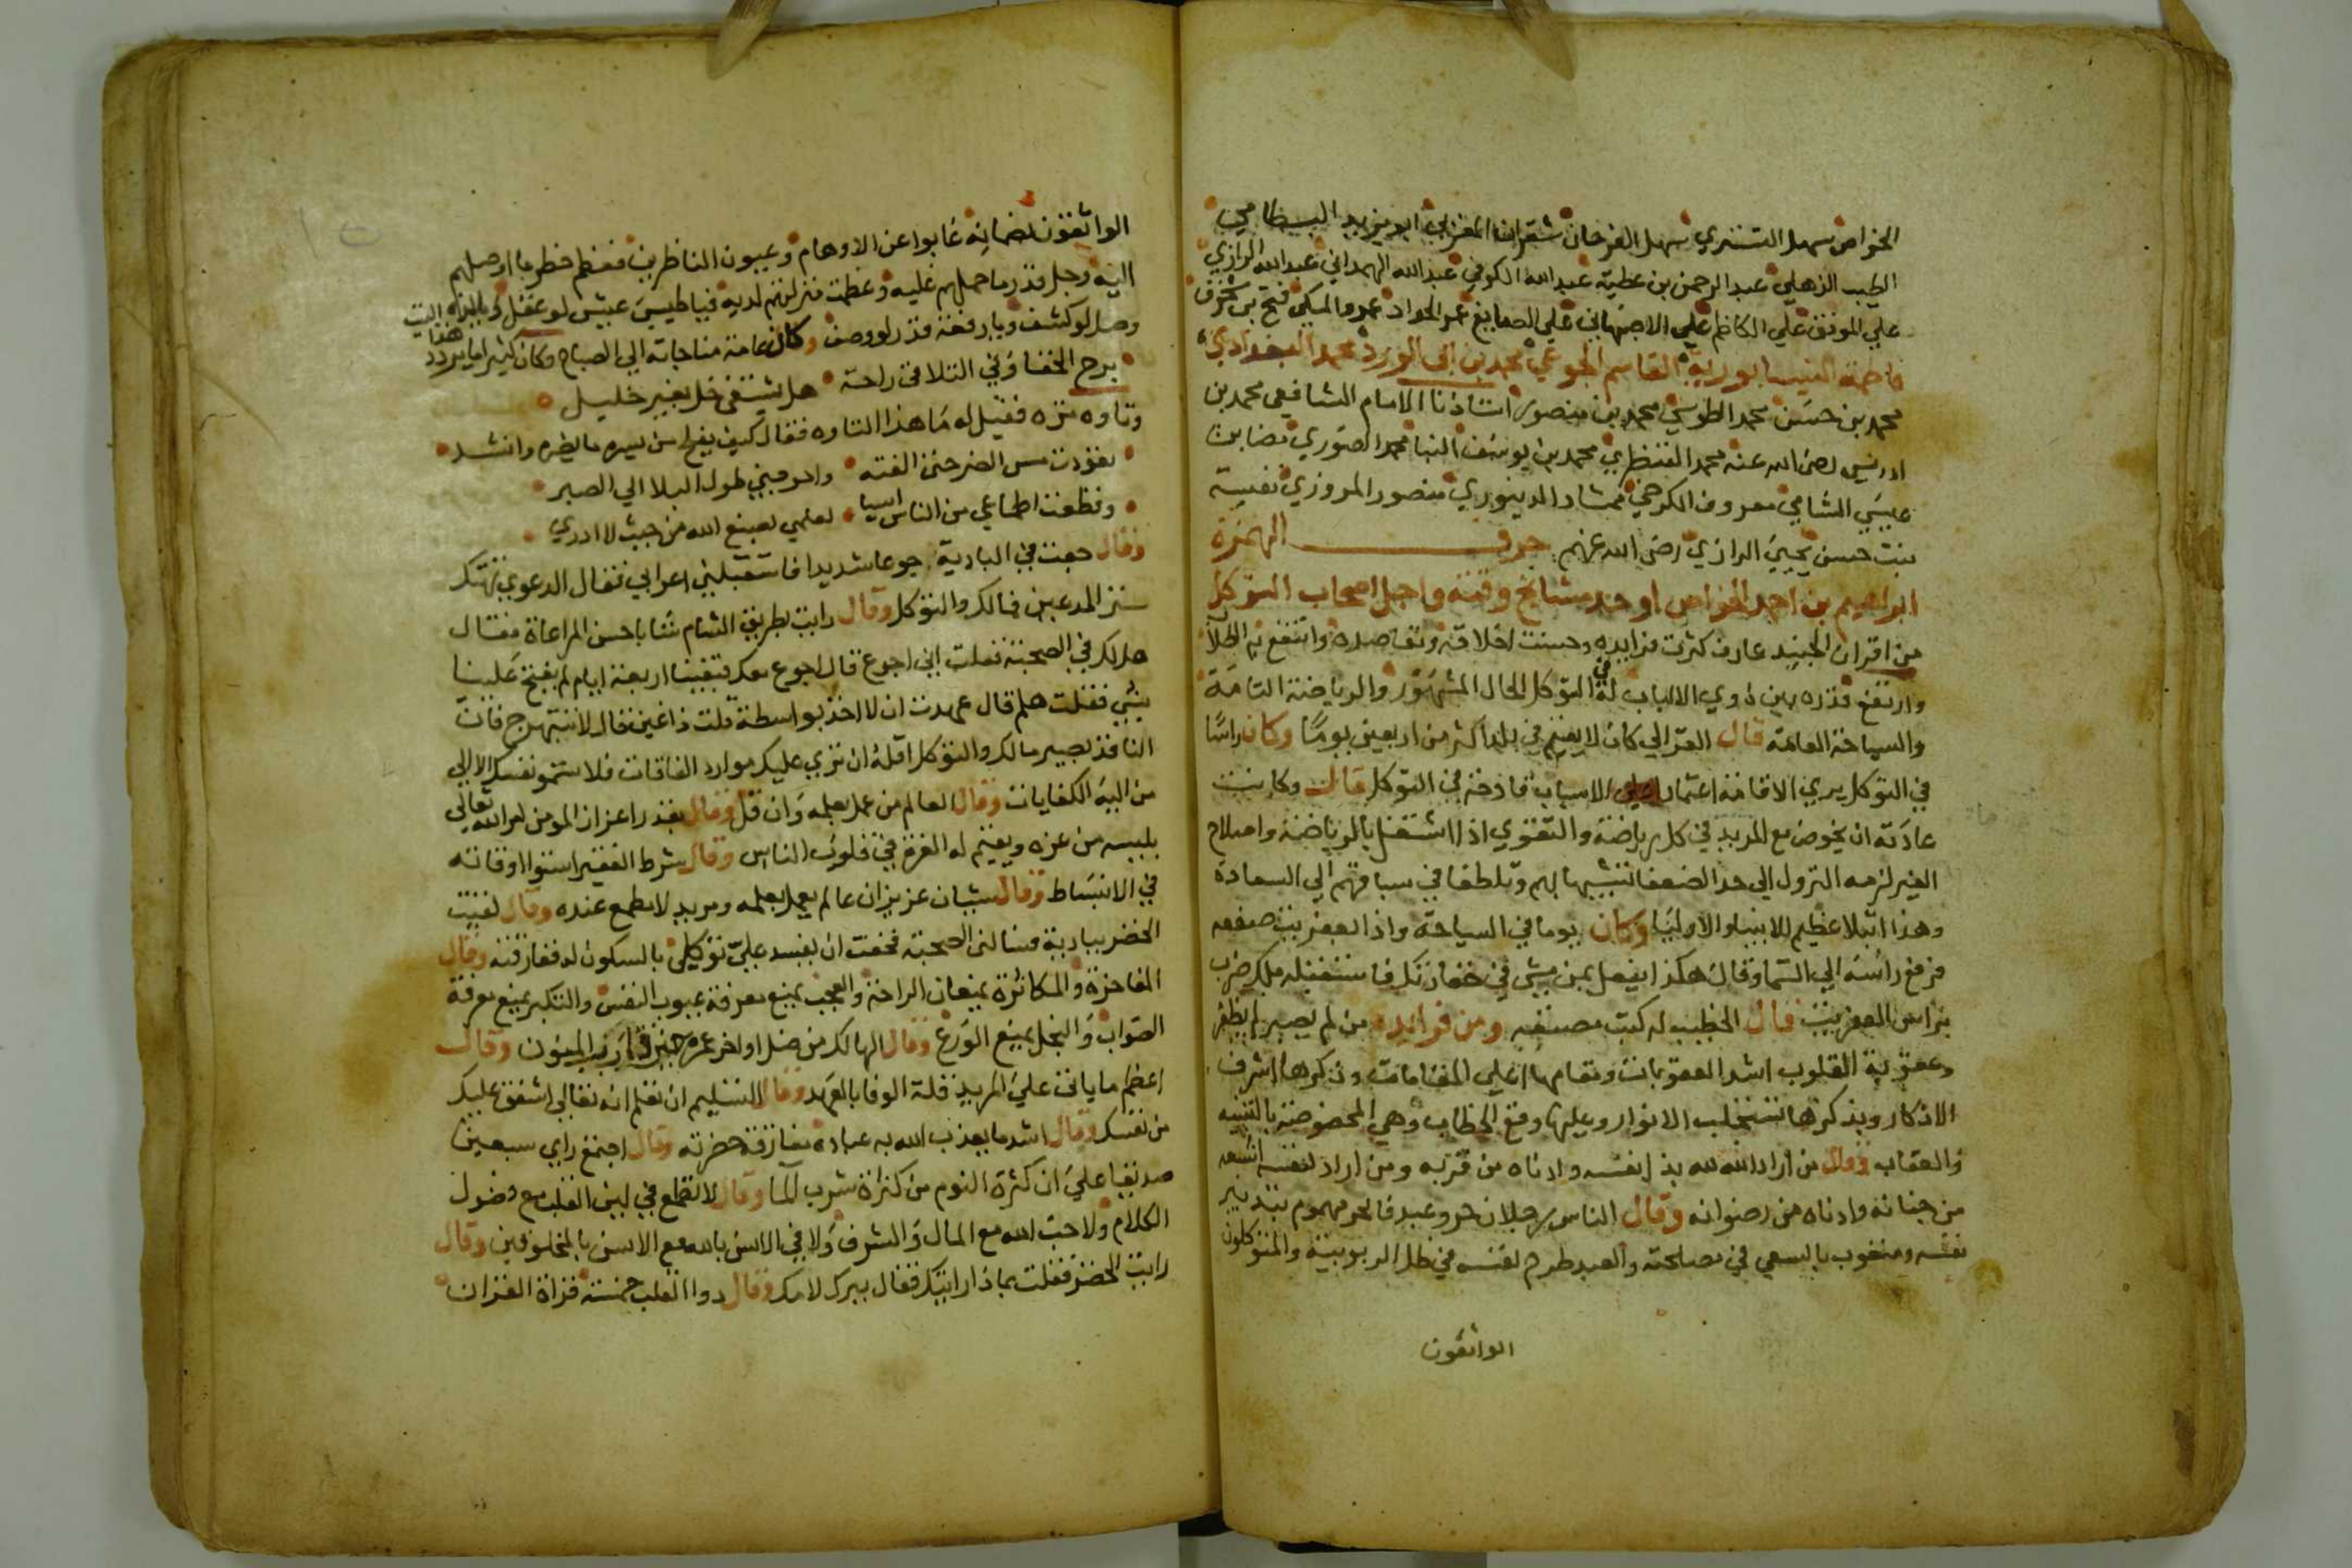 الخواص سهل التستري سهل الفرحان شقران المغربي ابو يزيد البسطامي
الطيب الذهلي عبد الرحمن بن عطية عبد الله الكوفي عبد الله الهمداني عبد الله الرازي
علي الموفق علي الكاظم علي الاصبهاني علي الصايغ عمر الحداد عمرو المكي فتح بن شخرف
فاطمة النيسابورية القاسم الجوعي محمد بن ابي الورد محمد البغدادي
محمد بن حسن محمد الطوسي محمد بن منصور استاذنا الامام الشافعي محمد بن
ادريس رضي الله عنه محمد القنطري محمد بن يوسف البنا محمد الصوري مضا بن
عيسي الشامي معروف الكرخي ممشاد الدينوري منصور المروزي نفيسة
بنت حسن يحيي الرازي رضي الله عنهم حرف الهمزة
ابراهيم بن احمد الخواص اوحد مشايخ وقته واجل اصحاب التوكل
من اقران الجنيد عارف كثرت فوايده وحسنت اخلاقه ومقاصده وانتفع به الطلا
وارتفع قدره بين ذوي الالباب له في التوكل الحال المشهور والرياضة التامة
والسياحة العامة قال الغزالي كان لا يقيم في بلد اكثر من اربعين يوما وكان راسا
في التوكل يري الاقامة اعتمادا علي الاسباب قادحة في التوكل قال وكانت
عادته ان يخوض مع المريد في كل رياضة والتقوي اذا اشتغل بالرياضة واصلاح
الغير لزمه النزول الي حد الضعفا تشبها بهم وتلطفا في سياقتهم الي السعادة
وهذا ابتلا عظيم للانبيا والاوليا وكان يوما في السياحة واذا بعفريت صفعه
فرفع راسه الي السما وقال هكذا يفعل بمن يمشي في خفارتك فاستقبله ملك ضرب
براس العفريت قال الخطيب له كتب مصنفه ومن فوايده من لم يصبر لم يظفر
وعقوبة القلوب اشد العقوبات ومقامها اعلي المقامات وذكرها اشرف
الاذكار وبذكرها تستجلب الانوار وعليها وقع الخطاب وهي المخصوصة بالتنبيه
والعقاب وقال من اراد الله لله بذل نفسه وادناه من قربه ومن اراد لنفسه اشبعه
من جنانه وادناه من رضوانه وقال الناس رجلان حر وعبد فالحر مهموم بتدبير
نفسه ومتعوب بالسعي في مصلحته والعبد طرح نفسه في ظل الربوبية والمتوكلون
الواثقون
الواثقون بضمانه غابوا عن الاوهام وعيون الناظرين فعظم خطر ما اوصلهم
اليه وجل قدر ما حملهم عليه وعظمت منزلتهم لديه فيا طيب عيش لو عقل ويا لذة
وصل لو كشف ويا رفعة قدر لو وصف وكان عامة مناجاته الي الصباح وكان كثيرا ما يردد هذا البيت
برح الخفا وفي التلاقي راحة هل يشتفي خل بغير خليل
وتاوه مرة فقيل له ما هذا التاوه فقال كيف يفلح من يسره ما يضره وانشد
تعودت مس الضر حتي الفته واحوجني طول البلا الي الصبر
وقطعت اطماعي من الناس ايسا لعلمي بصنع الله من حيث لا ادري
وقال جعت في البادية جوعا شديدا فاستقبلني اعرابي فقال الدعوي تهتك
ستر المدعين فمالك والتوكل وقال رايت بطريق الشام شابا حسن المراعاة فقال
هل لك في الصحبة فقلت اني اجوع قال اجوع معك فبقينا اربعة ايام لم يفتح علينا
بشي فقلت هلم قال عهدت ان لا اخذ بواسطة قلت دققت فقال لا تتبهرج فان
الناقد بصير مالك والتوكل اقله ان تري عليك موارد الفاقات فلا تسمو نفسك الا الي
من اليه الكفايات وقال العالم من عمل بعلمه وان قل وقال بقدر اعزاز المومن لامر الله تعالي
يلبسه من عزه ويقيم له العز في قلوب الناس وقال شرط الفقير استوا اوقاته
في الانبساط وقال شيان عزيزان عالم يعمل بعلمه ومريد لا مطمع عنده وقال لقيت
الخضر ببادية فسالني الصحبة فخفت ان يفسد علي توكلي بالسكون له ففارقته وقال
المفاخرة والمكاثرة يمنعان الراحة والعجب يمنع معرفة عيوب النفس والتكبر يمنع معرفة
الصواب والبخل يمنع الورع وقال الهالك من ضل اواخر عمره حين قارب المنون وقال
اعظم ما يافت علي المريد قلة الوفا بالعهد وقال التسليم ان تعلم انه تعالي اشفق عليك
من نفسك وقال اشد ما يعذب الله به عباده مفارقة حضرته وقال اجتمع راي سبعين
صديقا علي ان كثرة النوم من كثرة شرب الما وقال لا تطمع في لين القلب مع فضول
الكلام ولا حب الله مع المال والشرف ولا في الانس بالله مع الانس بالمخلوقين وقال
رايت الخضر فقلت بماذا رايتك فقال ببرك لامك وقال دوا القلب خمسة قراة القران